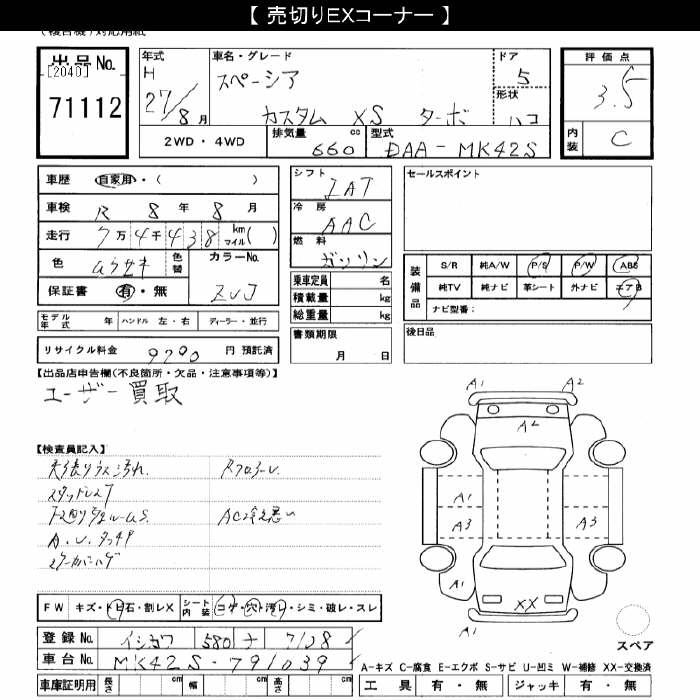 【 売切りEXコーナー 】
(複合機)対応用紙
出品No.
[2040]
71112
年式
H
27/8月
車名・グレード
スペーシア
カスタム XS ターボ
ドア
5
形状
ハコ
評価点
3.5
内装
C
2WD・4WD
排気量
660 cc
型式
DAA-MK42S
車歴
自家用・( )
車検
R 8年 8月
走行
7万4千438 km マイル( )
色
ムラサキ
色替
カラーNo.
ZVJ
保証書
有・無
モデル年式 年
ハンドル 左・右
ディーラー・並行
リサイクル料金 9790 円 預託済
シフト
IAT
冷房
AAC
燃料
ガソリン
乗車定員 名
積載量 kg
総重量 kg
書類期限
月 日
セールスポイント
装備品
S/R 純A/W P/S P/W ABS
純TV 純ナビ 革シート 外ナビ エアB
ナビ型番:
後日品
【出品店申告欄(不良箇所・欠品・注意事項等)】
ユーザー買取
【検査員記入】
天張りウス汚れ
スタッドレス7
下廻り
A.U.タッチ
AC冷え悪い
A1 A2
A2
A1
A3 A3
A1
XX
A1
スペア
FW キズ・トビ石・割レX
シート内装 コゲ・穴・汚レ・シミ・破レ・スレ
登録No. イシカワ 580 ナ 7138
車台No. MK42S-791039
車庫証明用 長さ cm 幅 cm 高さ cm
A-キズ C-腐食 E-エクボ S-サビ U-凹ミ W-補修 XX-交換済
工具 有・無 ジャッキ 有・無